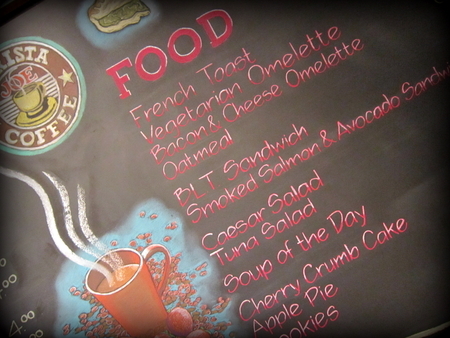 FOOD
French Toast
Vegetarian Omelette
Bacon & Cheese Omelette
Oatmeal
BLT Sandwich
Smoked Salmon & Avocado Sandwi
Caesar Salad
Tuna Salad
Soup of the Day
Cherry Crumb Cake
Apple Pie
ookies
ISTA
JOE
COFFEE
.00
4.00